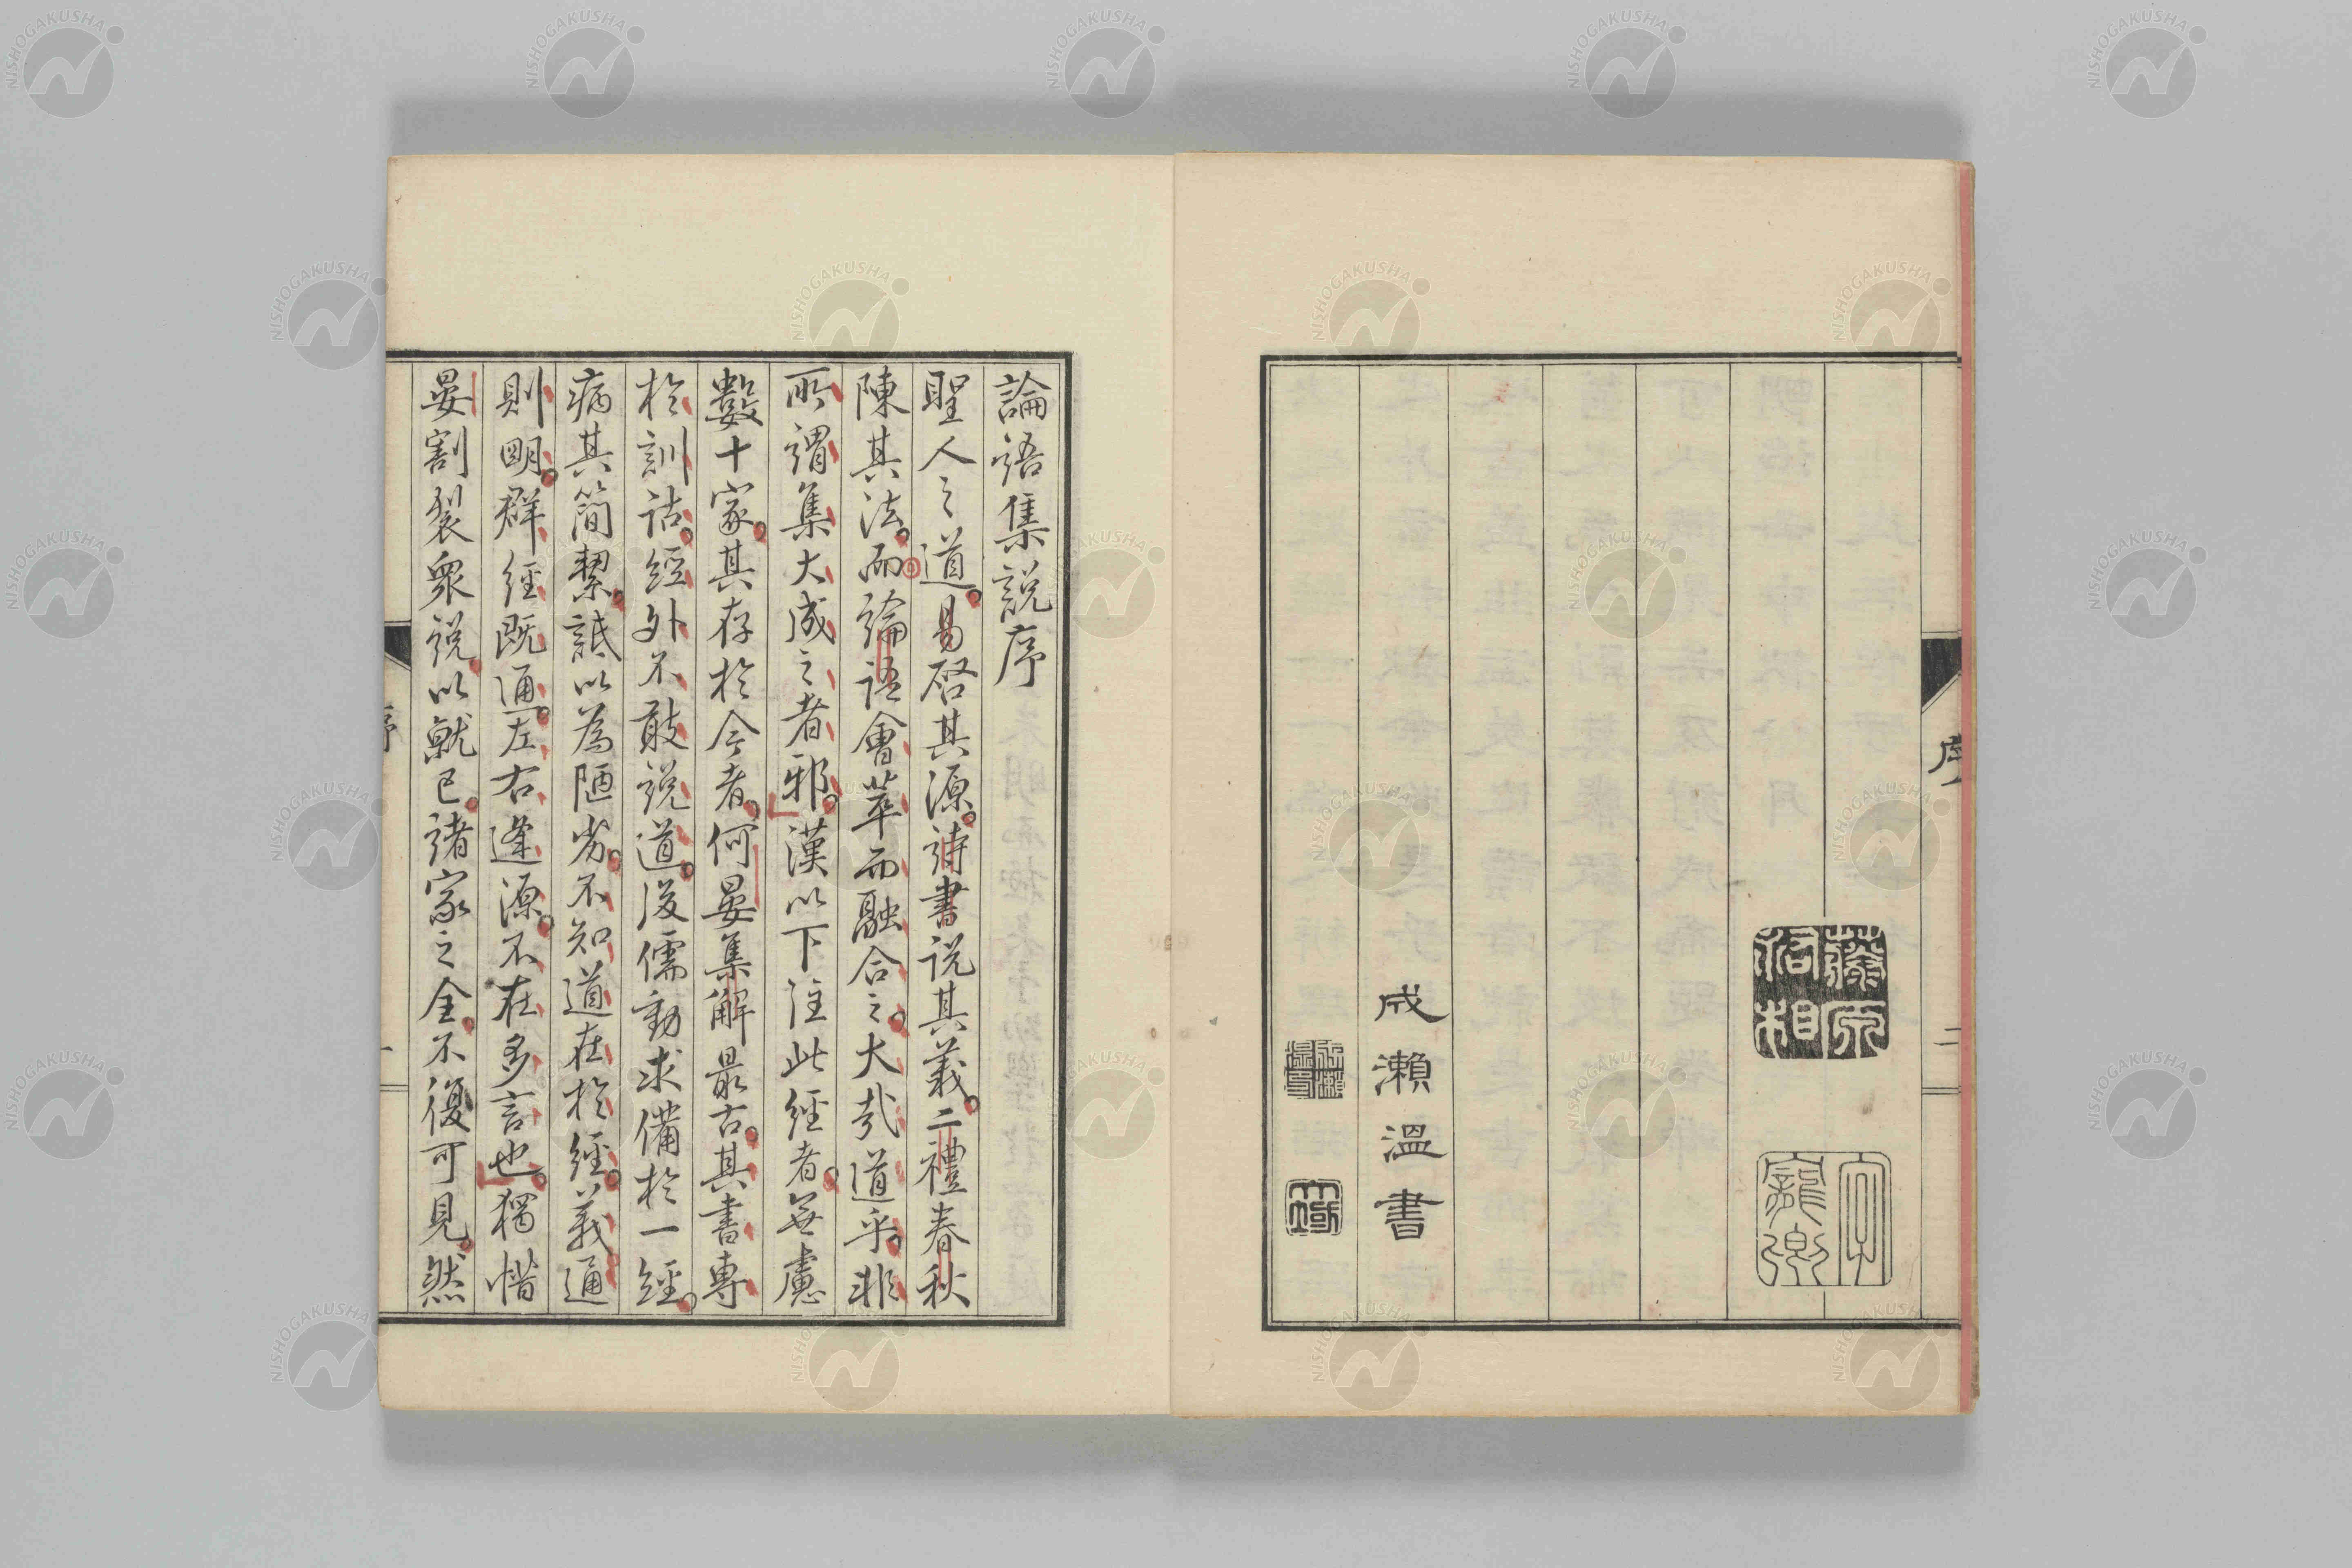 序
二
藤原
相
字
成瀬溫書
論語集説序
聖人之道。易啓其源。詩書説其義。二禮春秋
陳其法。而論語會萃而融合之。大哉道乎。非
所謂集大成之者邪。漢以下注此經者。無慮
數十家。其存於今者。何晏集解最古。其書專
於訓詁。經外不敢説道。後儒動求備於一經。
病其簡㓗。詆以為陋劣。不知道在於經。義通
則明。群經既通。左右逢源。不在多言也。獨惜
晏割裂衆説。以就己。諸家之全。不復可見。然
序
一
NISHOGAKUSHA